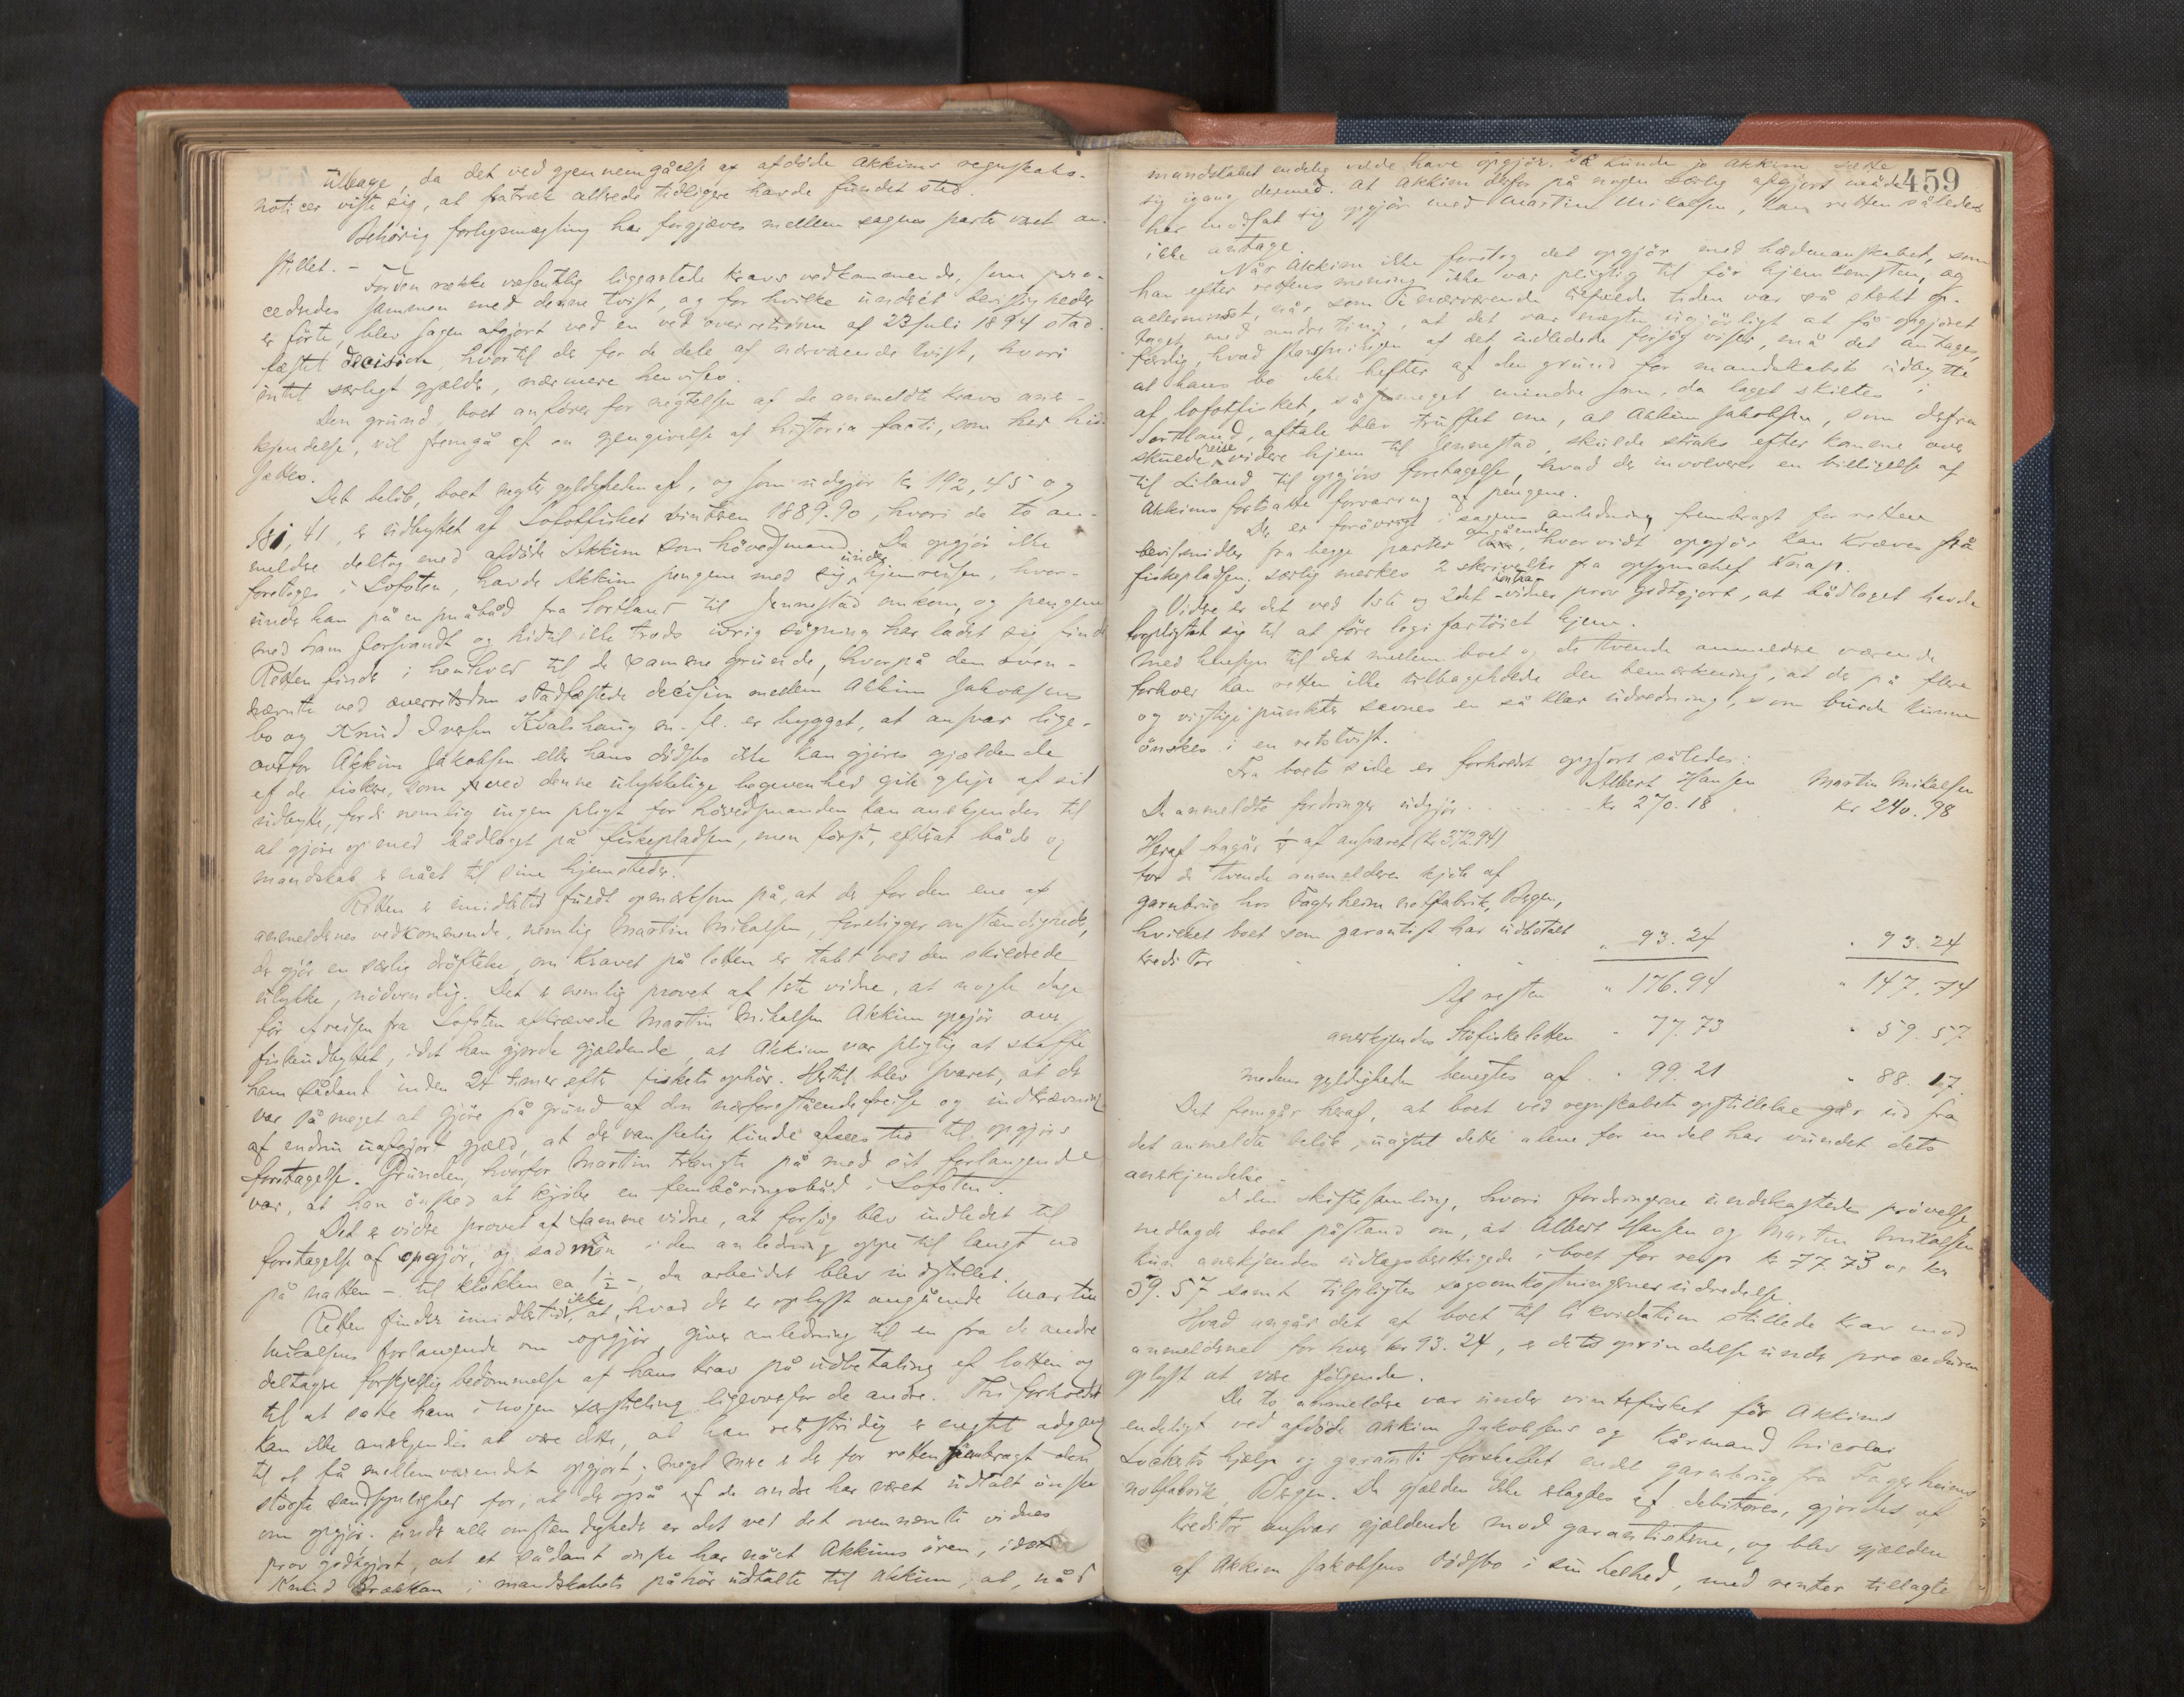 tilbage, da det ved gjennemgåelse af afdøde Akkims regnskabs-
notices viste sig, at fratræk allerede tidligere havde fundet sted.
Behörig forligsmægling har forgjæves mellem sagens parter været an-
stillet. -
For den række væsentlig ligeartede kravs vedkommende, som pro-
cederedes sammen med denne tvist, og for hvilke endel bevisligheder
er förte, blev sagen afgjort ved en ved overretsdom af 23 juli 1894 stad-
fæstet decision, hvortil der for de dele af nærværende tvist, hvori
intet særligt gjælder, nærmere henvises.
Den grund, boet anförer for nægtelsen af de anmeldte kravs aner-
kjendelse, vil fremgå af en gengivelse af historia facti, som her hid-
sættes.
Det belöb, boet negter gyldigheden af, og som udgjör kr 192,45 og
181,41, er udbyttet af Lofotfisket vintren 1889-90, hvori de to an-
meldere deltog med afdöde Akkim som hövedsmand. Da opgjör ikke
foretoges i Lofoten, havde Akkim pengene med sig under hjemreisen, hvor-
under han på en småbåd fra Sortland til Jennestad omkom, og pengene
med ham forsvandt og hidtil ikke trods ivrig sögning har ladet sig finde
Retten finder i henhold til de samme grunde, hvorpå den oven-
nævnte ved overretsdom stadfæstede decision mellem Akkim Jakobsens
bo og Knud Iversen Kvalshaug m. fl. er bygget, at ansvar lige-
overfor Akkim Jakobsen eller hans dödsbo ikke kan gjöres gjældende
af de fiskere, som ved denne ulykkelige begivenhed gik glip af sit
udbytte, fordi nemlig ingen pligt for hövedsmanden kan anerkjendes til
at gjöre op med bådlaget på fiskepladsen, men först, efterat både og
mandskab er nået til sine hjemsteder.
Retten er imidlertid fuldt opmerksom på, at der for den ene af
anmeldernes vedkommende, nemlig Martin Mikalsen, foreligger omstændigheder,
der gjör en særlig dröftelse, om kravet på lotten er tabt ved den skildrede
ulykke, nödvendig. Det er nemlig provet af 1ste vidne, at nogle dage
för afreisen fra Lofoten afkrævede Martin Mikalsen Akkim opgjör over
fiskeudbyttet, idet han gjorde gjældende, at Akkim var pligtig at skaffe
ham sådant inden 24 timer efter fiskets ophör. Hertil blev svaret, at der
var så meget at gjöre på grund af den nærforestående afreise og inddrævning
af endnu uafgjort gjæld, at der vanskelig kunde afsees tid til opgjörs
foretagelse. Grunden, hvorfor Martin trængte på med sit forlangende
var, at han önsked at kjöbe en fembøringsbåd i Lofoten.
Det er videre provet af samme vidne, at forsög blev indledet til
foretagelse af opgjör, og sad man i den anledning oppe til langt ud
på natten - til klokken ca 1½ -, da arbeidet blev indstillet.
Retten finder imidlertid ikke at, hvad der er oplyst angående Martin
Mikalsens forlangende om opgjör, giver anledning til en fra de andre
deltagere forskjellig bedömmelse af hans krav på udbetaling af lotten og
til at sætte ham i nogen særstilling ligeoverfor de andre. Thi forholdet
kan ikke anerkjendes at være dette, at han retsstridig er negtet adgang
til at få mellemværendet opgjort; meget mere er der for retten frembragt den
störste sandsynlighed for, at der også af de andre har været udtalt önske
om opgjör; under alle omstændigheder er det ved det ovennævnte vidnes
prov godtgjort, at et sådant önske har nået Akkims ören, idet
Knud Brækkan i mandskabets påhör udtalte til Akkim, at, når
459
mandskabet endelig vilde have opgjör. Så kunde jo Akkim sætte
sig igang dermed. At Akkim derfor på nogen særlig afgjort måde
har modsat sig opgjör med Martin Mikalsen, kan retten således
ikke antage.
Når Akkim ikke foretog det opgjör med bådmandskabet, som
han efter rettens mening ikke var pligtig til för hjemkomsten, og
allermindst, når, som i nærværende tilfælde tiden var så stærkt op-
taget med andre ting, at det var næsten ugjörligt at få opgjöret
færdig, hvad strandningen af det indledede forsög viser, må det antages,
at hans bo ikke hefter af den grund for mandskabets udbytte
af lofotfisket, så meget mindre som, da laget skiltes i
Sortland, aftale blev truffet om, at Akkim Jakobsen, som derfra
skulde reise videre hjem til Jennestad, skulde straks efter komme over
til Liland til opgjörs foretagelse, hvad der involverer en billigelse af
Akkims fortsatte forvaring af pengene.
Der er forövrigt i sagens anledning frembragt for retten
bevismidler fra begge parter angående, hvorvidt opgjör kan kræves på
fiskepladsen; særlig merkes 2 skrivelser fra opsynschef Knap.
Videre er det ved 1ste og 2det vidnes prov godtgjort, at bådlaget havde
forpligtet sig til at före logifartöiet hjem.
Med hensyn til det mellem boet og de tvende anmeldere værende
forhold kan retten ikke tilbageholde den bemerkning, at der på flere
og vigtige punkter savnes en så klar udredning, som burde kunne
önskes i en retstvist.
Fra boets side er forholdet opgjort således:
Albert Hansen Martin Mikalsen
De anmeldte fordringer udgjör ..... kr 270.18 kr 240.98
Heraf fragår ¼ af ansvaret (kr 372.94)
for de tvende anmelderes kjöb af
garnbrug hos Fagerheim notfabrik, Bergen,
hvilket boet som garantist har udbetalt
kreditor " 93.24 " 93.24
Af resten " 176.94 " 147.74
anerkjendes Störfiskelotten " 77.73 " 59.57
medens gyldigheden benegtes af " 99.21 " 88.17
Det fremgår heraf, at boet ved regnskabets opstillelse går ud fra
det anmeldte belöb, uagtet dette alene for en del har vundet dets
anerkjendelse -
I den skiftesamling, hvori fordringerne underkastedes prövelse,
nedlagde boet påstand om, at Albert Hansen og Martin Mikalsen
kun anerkjendes udlagsberettigede i boet for resp kr 77.73 og kr
59.57 samt tilpligtes sagsomkostningernes udredelse.
Hvad angår det af boet til likvidation stillede krav mod
anmelderne for hver kr 93.24, er dets oprindelse under proceduren
oplyst at være fölgende.
De to anmeldere var under vinterfisket för Akkims
endeligt ved afdöde Akkim Jakobsens og kårmand Nicolai
Lockerts hjælp og garanti forskaffet endel garnbrug fra Fagerheims
notfabrik, Bergen. Da gjælden ikke klaredes af debitorer, gjordes af
kreditor ansvar gjældende mod garantisterne, og blev gjælden
af Akkim Jakobsens dödsbo i sin helhed, med renter tillagte